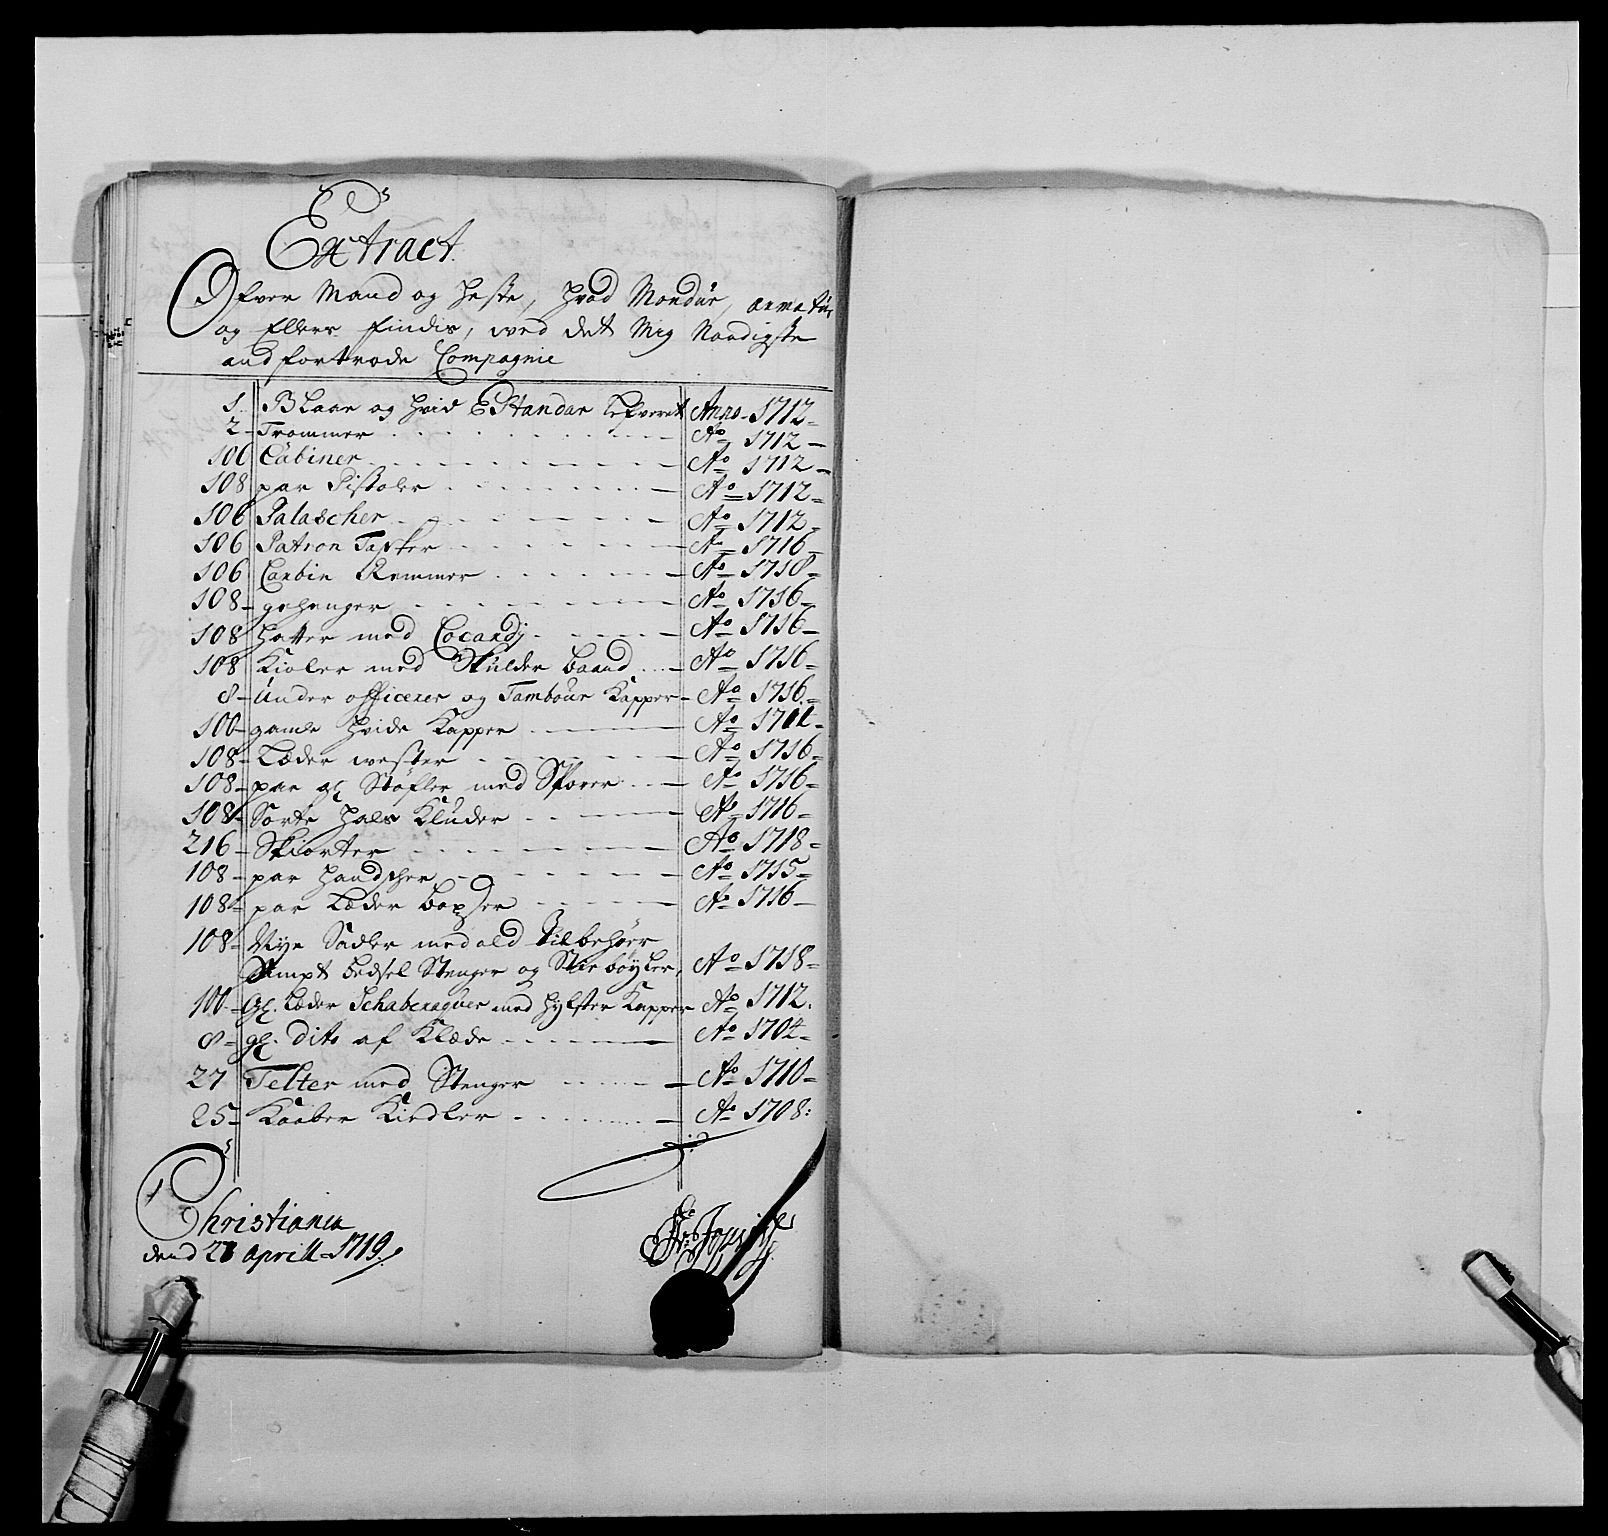 Extract
Ofver Mand og heste, hvad Mondur, armatur
og Ellers findis, wed det Mig Naadigste
anfortrode Compagnie
1. Blaae og hvid EStandar lefveret Anno 1712
2 Trommer Ao 1712
106 Cabiner Ao 1712
108 par Pistoler Ao 1712
106 Palascher Ao 1712
106 Patron Tasker Ao 1716
106 Carbin Remmer Ao 1710
108 gehenger Ao 1716
108 hatter med Cocardj Ao 1716
108 Kioler med Skulder baand Ao 1716
8 Under officerer og Tambour Kapper Ao 1716
100 gamle hvide Kapper Ao
108 Læder wester Ao 1716
108 par gl Støfler med Sporer Ao 1716
108 Sorte hals Kluder Ao 1716
216 Skiorter Ao 1718
108 par handscher Ao 1715
108 par Læder boxser Ao 1716
108 Nye Sadler med ald Tilbehørr
Sampt bedsel Stenger og Stie bøyler, Ao 1718
100 Gl. Læder Schaberaquer med hylster Kapper Ao 1712.
8 gl. dito af Klæde Ao 1704
27 Telter med Stenger Ao 1710
25 Kaaber Kiedler Ao 1708:
Christiania
dend 28 Aprill 1719.